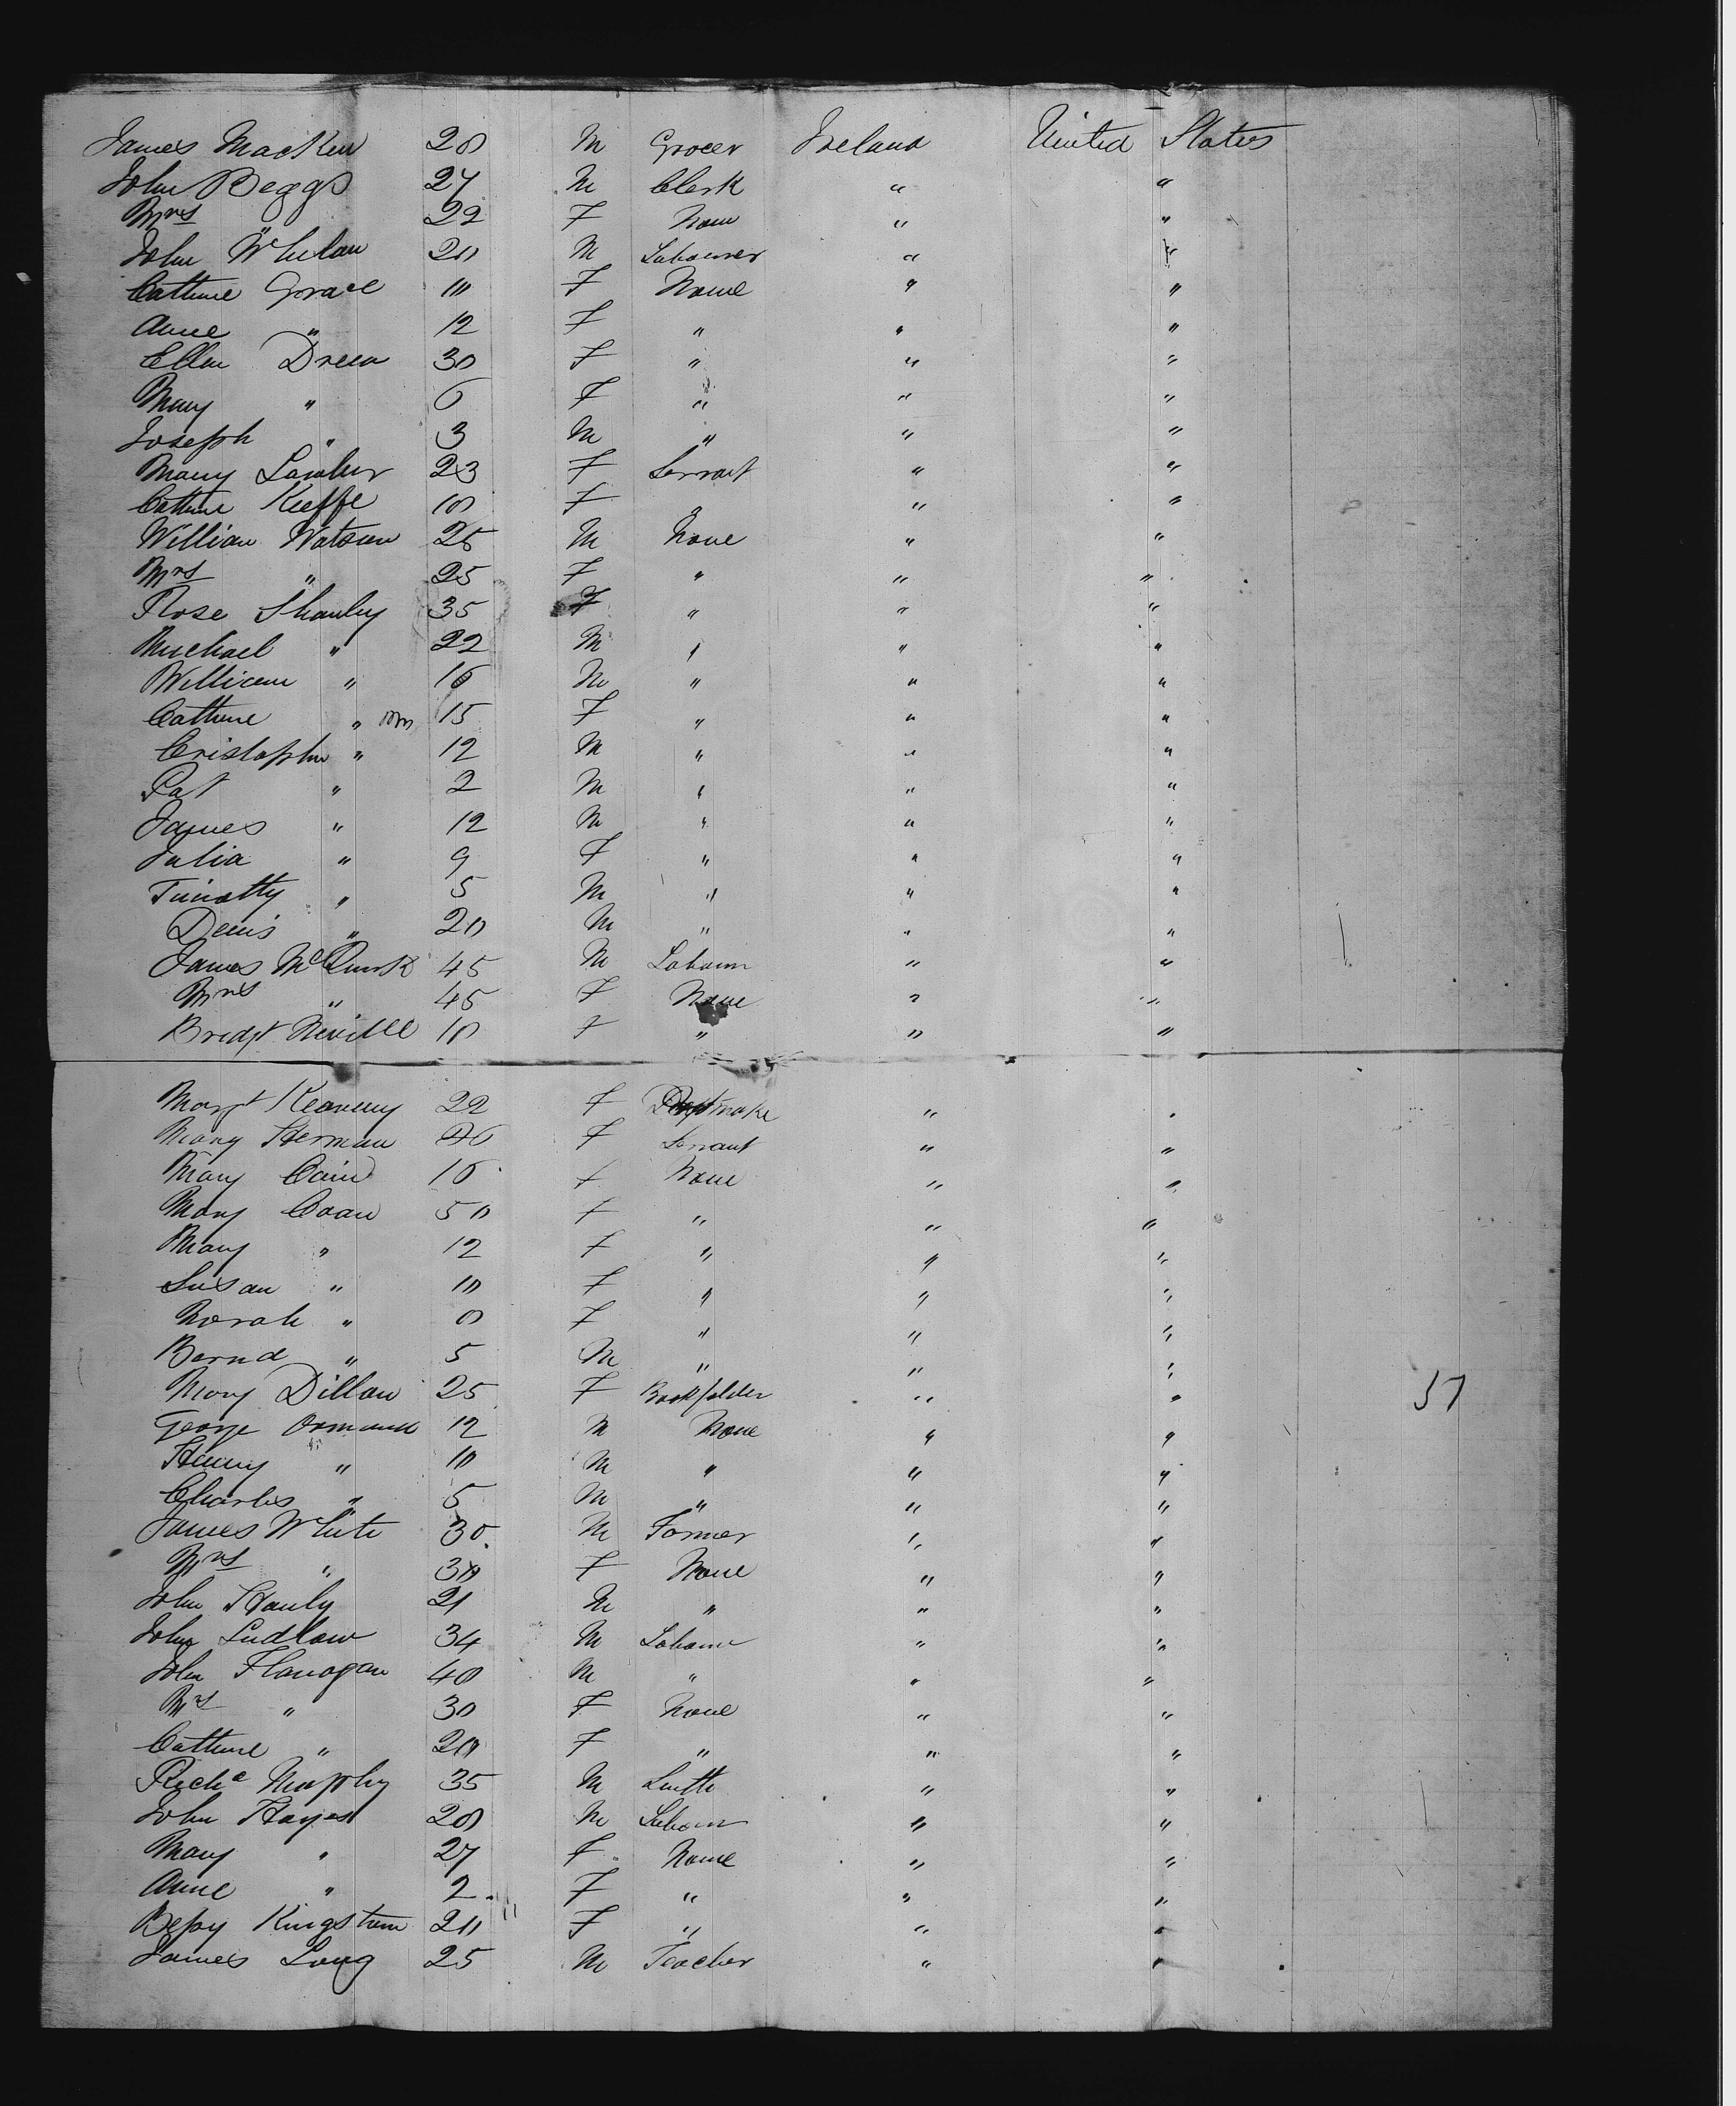 James Macken 20 M Grocer Ireland United States
John Beggs 27 M Clerk " "
Mrs " 22 F None " "
John Whelan 20 M Labourer " "
Cathrne Grace 10 F None " "
Anne " 12 F " " "
Ellen Drew 30 F " " "
Mary " 6 F " " "
Joseph " 3 M " " "
Mary Lawler 23 F Servant " "
Cathrne Keeffe F " "
William Watson 25 M None " "
Mrs " 25 F " " "
Rose Shanly 35 F " " "
Michael " 22 M " " "
William " 16 M " " "
Cathrne " 15 F " " "
Cristopher " 12 M " " "
Pat " 2 M " " "
James " 12 M " " "
Julia " 9 F " " "
Timothy " 5 M " " "
Denis " 20 M " " "
James McQuirk 45 M Labourer " "
Mrs " 45 F None " "
Bridgt Neville F " " "
Margt Kearney 22 F " "
Mary Herman F Servant " "
Mary Cain 16 F None " "
Mary Coan 50 F " " "
Mary " 12 F " " "
Susan " 10 F " " "
Norah " F " " "
Bernd " 5 M " " "
Mary Dillon 25 F Bookfolder " " 57
George Ormand 12 M None " "
Henry " 10 M " " "
Charles " 5 M " " "
James White 30 M Farmer " "
Mrs " 30 F None " "
John Hanly 21 M " " "
John Ludlow 34 M Labourer " "
John Flanagan 40 M " " "
Mrs " 30 F None " "
Cathrne " 20 F " " "
Richd Murphy 35 M Smith " "
John Hayes 20 M Labourer " "
Mary " 27 F None " "
Anne " 2 F " " "
Bessy Kingston 20 F " " "
James Long 25 M Teacher " "